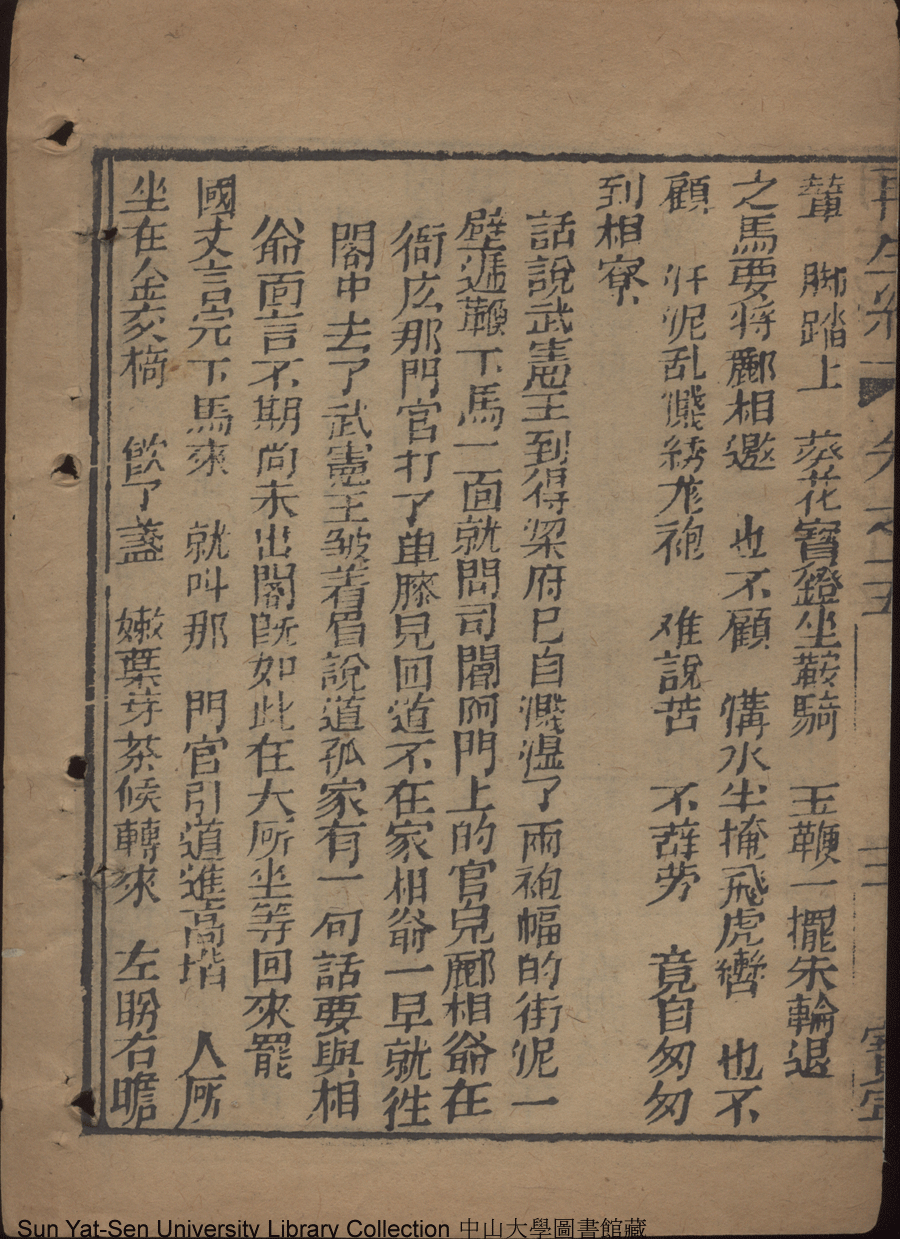 輦　脚踏上　葵花寳鐙坐鞍騎　玉鞭一擺朱輪退
之馬要将酈相邀　也不顧　溝水尘掩飛虎轡　也不
顧　汙泥乱濺綉尨袍　难說苦　不辞劳　竟自匆匆
到相寮
話說武憲王到得梁府已自濺湿了兩袍幅的街泥一
壁逓鞭下馬一面就問司閽阿門上的官兒酈相爺在
衙庅那門官打了单膝見回道不在家相爺一早就徃
閣中去了武憲王皱着眉說道孤家有一句話要與相
爺面言不期尚未出閣旣如此在大所坐等回來罷
國丈言完下馬來　就叫那　門官引道進高堦　人所
坐在金交椅　飲了盏　嫩葉芽茶候轉來　左盼右瞻
再生緣
卷之五
三
寳寧
Sun Yat-Sen University Library Collection 中山大學圖書館藏